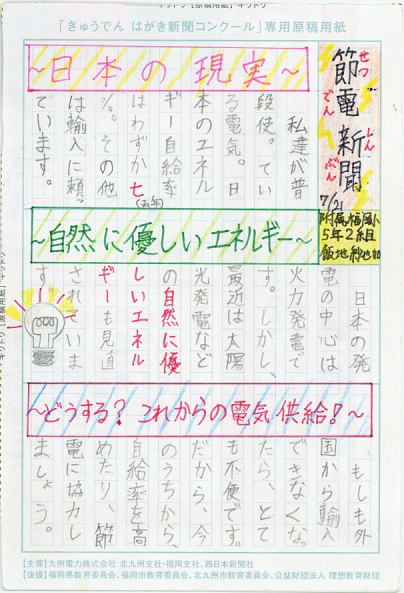 「きゅうでん はがき新聞コンクール」専用原稿用紙
節電新聞
せつでんしんぶん
7/21
附属福岡小
5年2組
~日本の現実~
私達が普
段使ってい
る電気。日
本のエネル
ギー自給率
はわずか七
%。その他
は輸入に頼っ
ています。
~自然に優しいエネルギー~
日本の発
電の中心は
火力発電で
す。しかし、
最近は太陽
光発電など
の自然に優
しいエネル
ギーも見直
されていま
す。
~どうする?これからの電気供給!~
もしも外
国から輸入
できなくなっ
たら、とて
も不便です。
だから、今
のうちから、
自給率を高
めたり、節
電に協力し
ましょう。
【主催】九州電力株式会社 北九州支社・福岡支社、西日本新聞社
【後援】福岡県教育委員会、福岡市教育委員会、北九州市教育委員会、公益財団法人 理想教育財団